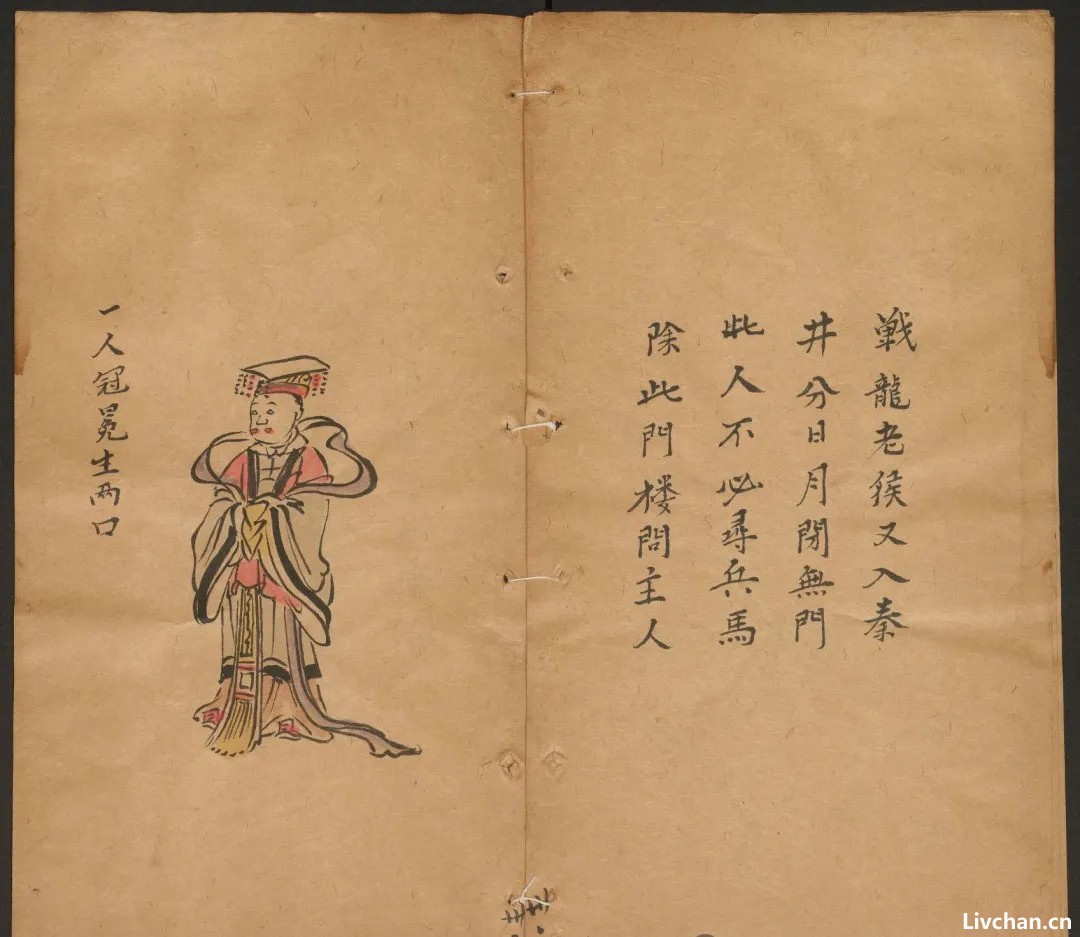 戦龍老猴又入秦
井分日月閉無門
此人不必尋兵馬
除此門楼問主人
一人冠冕生两口
Livchan.cn